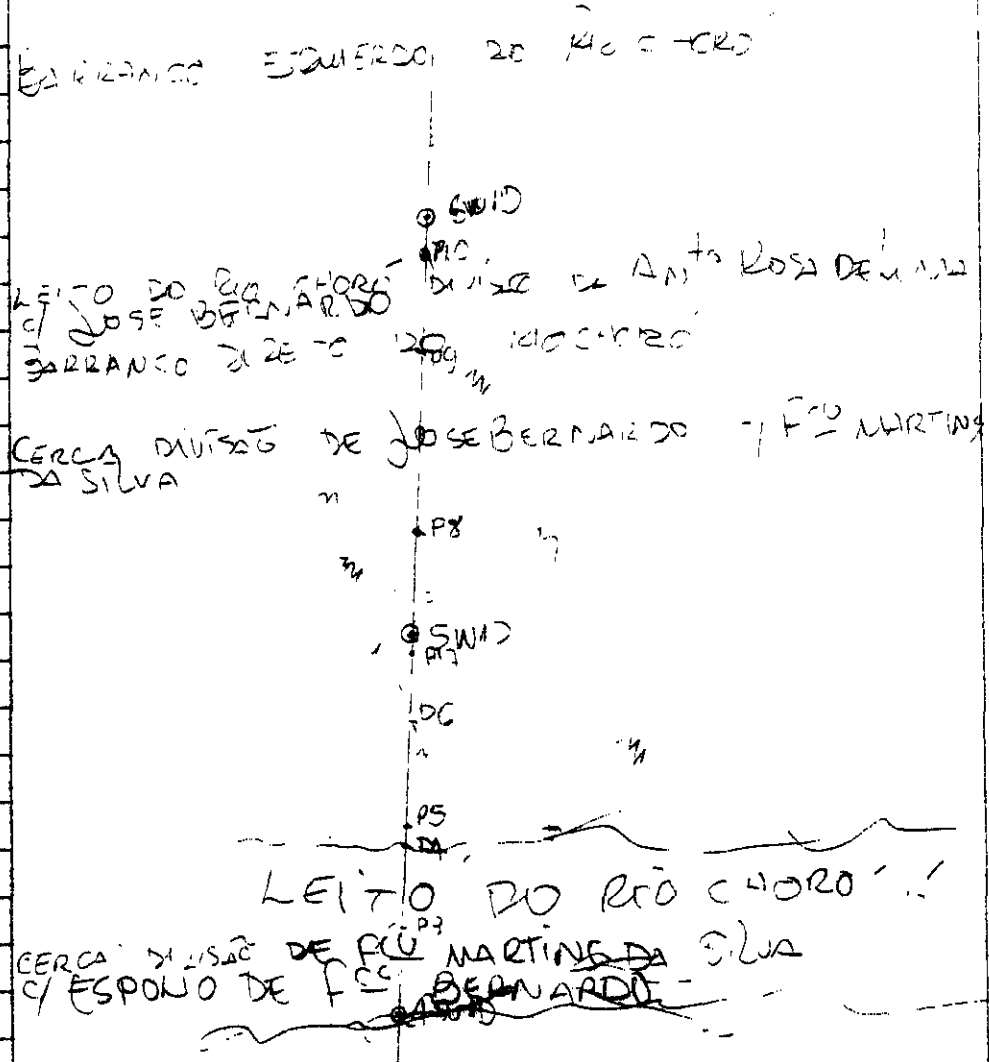 BARRANCO ESQUERDO DO RIO CHORÓ
SWID
P10
LEITO DO RIO CHORÓ DIVISÃO DE ANTº ROSA DE
C/ JOSE BERNARDO
BARRANCO DIREITO DO RIO CHORÓ
P9
CERCA DIVISÃO DE JOSE BERNARDO C/ Fco MARTINS
DA SILVA
P8
SWID
P7
P6
P5
P4
LEITO DO RIO CHORÓ
P3
CERCA DIVISÃO DE Fco MARTINS DA SILVA
C/ ESPOLIO DE Fco BERNARDO